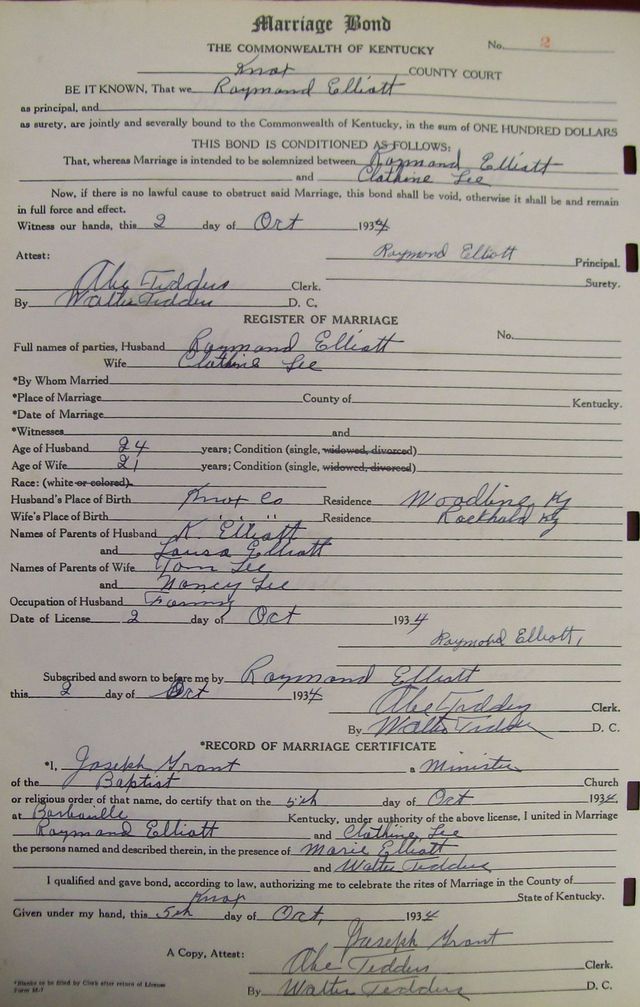 Marriage Bond
THE COMMONWEALTH OF KENTUCKY No. 2
Knox COUNTY COURT
BE IT KNOWN, That we Raymond Elliott
as principal, and
as surety, are jointly and severally bound to the Commonwealth of Kentucky, in the sum of ONE HUNDRED DOLLARS
THIS BOND IS CONDITIONED AS FOLLOWS:
That, whereas Marriage is intended to be solemnized between Raymond Elliott
and Clothine Lee
Now, if there is no lawful cause to obstruct said Marriage, this bond shall be void, otherwise it shall be and remain
in full force and effect.
Witness our hands, this 2 day of Oct 1934
Attest: Raymond Elliott Principal.
Abe Tedders Clerk. Surety.
By Walter Tedders D. C.
REGISTER OF MARRIAGE
Full names of parties, Husband Raymond Elliott No.
Wife Clothine Lee
*By Whom Married
*Place of Marriage County of Kentucky.
*Date of Marriage
*Witnesses and
Age of Husband 24 years; Condition (single, widowed, divorced)
Age of Wife 21 years; Condition (single, widowed, divorced)
Race: (white or colored)
Husband's Place of Birth Knox Co Residence Woodbine Ky
Wife's Place of Birth " " " Residence Rockhold Ky
Names of Parents of Husband K. Elliott
and Lousa Elliott
Names of Parents of Wife Tom Lee
and Nancy Lee
Occupation of Husband
Date of License 2 day of Oct 1934
Raymond Elliott,
Subscribed and sworn to before me by Raymond Elliott
this 2 day of Oct 1934 Abe Tedders Clerk.
By Walter Tedders D. C.
*RECORD OF MARRIAGE CERTIFICATE
*I, Joseph Grant a Minister
of the Baptist Church
or religious order of that name, do certify that on the 5th day of Oct 1934
at Kentucky, under authority of the above license, I united in Marriage
Raymond Elliott and Clothine Lee
the persons named and described therein, in the presence of Marie Elliott
and Walter Tedders
I qualified and gave bond, according to law, authorizing me to celebrate the rites of Marriage in the County of
Knox State of Kentucky.
Given under my hand, this 5th day of Oct, 1934
Joseph Grant
A Copy, Attest: Abe Tedders Clerk.
By Walter Tedders D. C.
*Blanks to be filled by Clerk after return of License
Form M-7